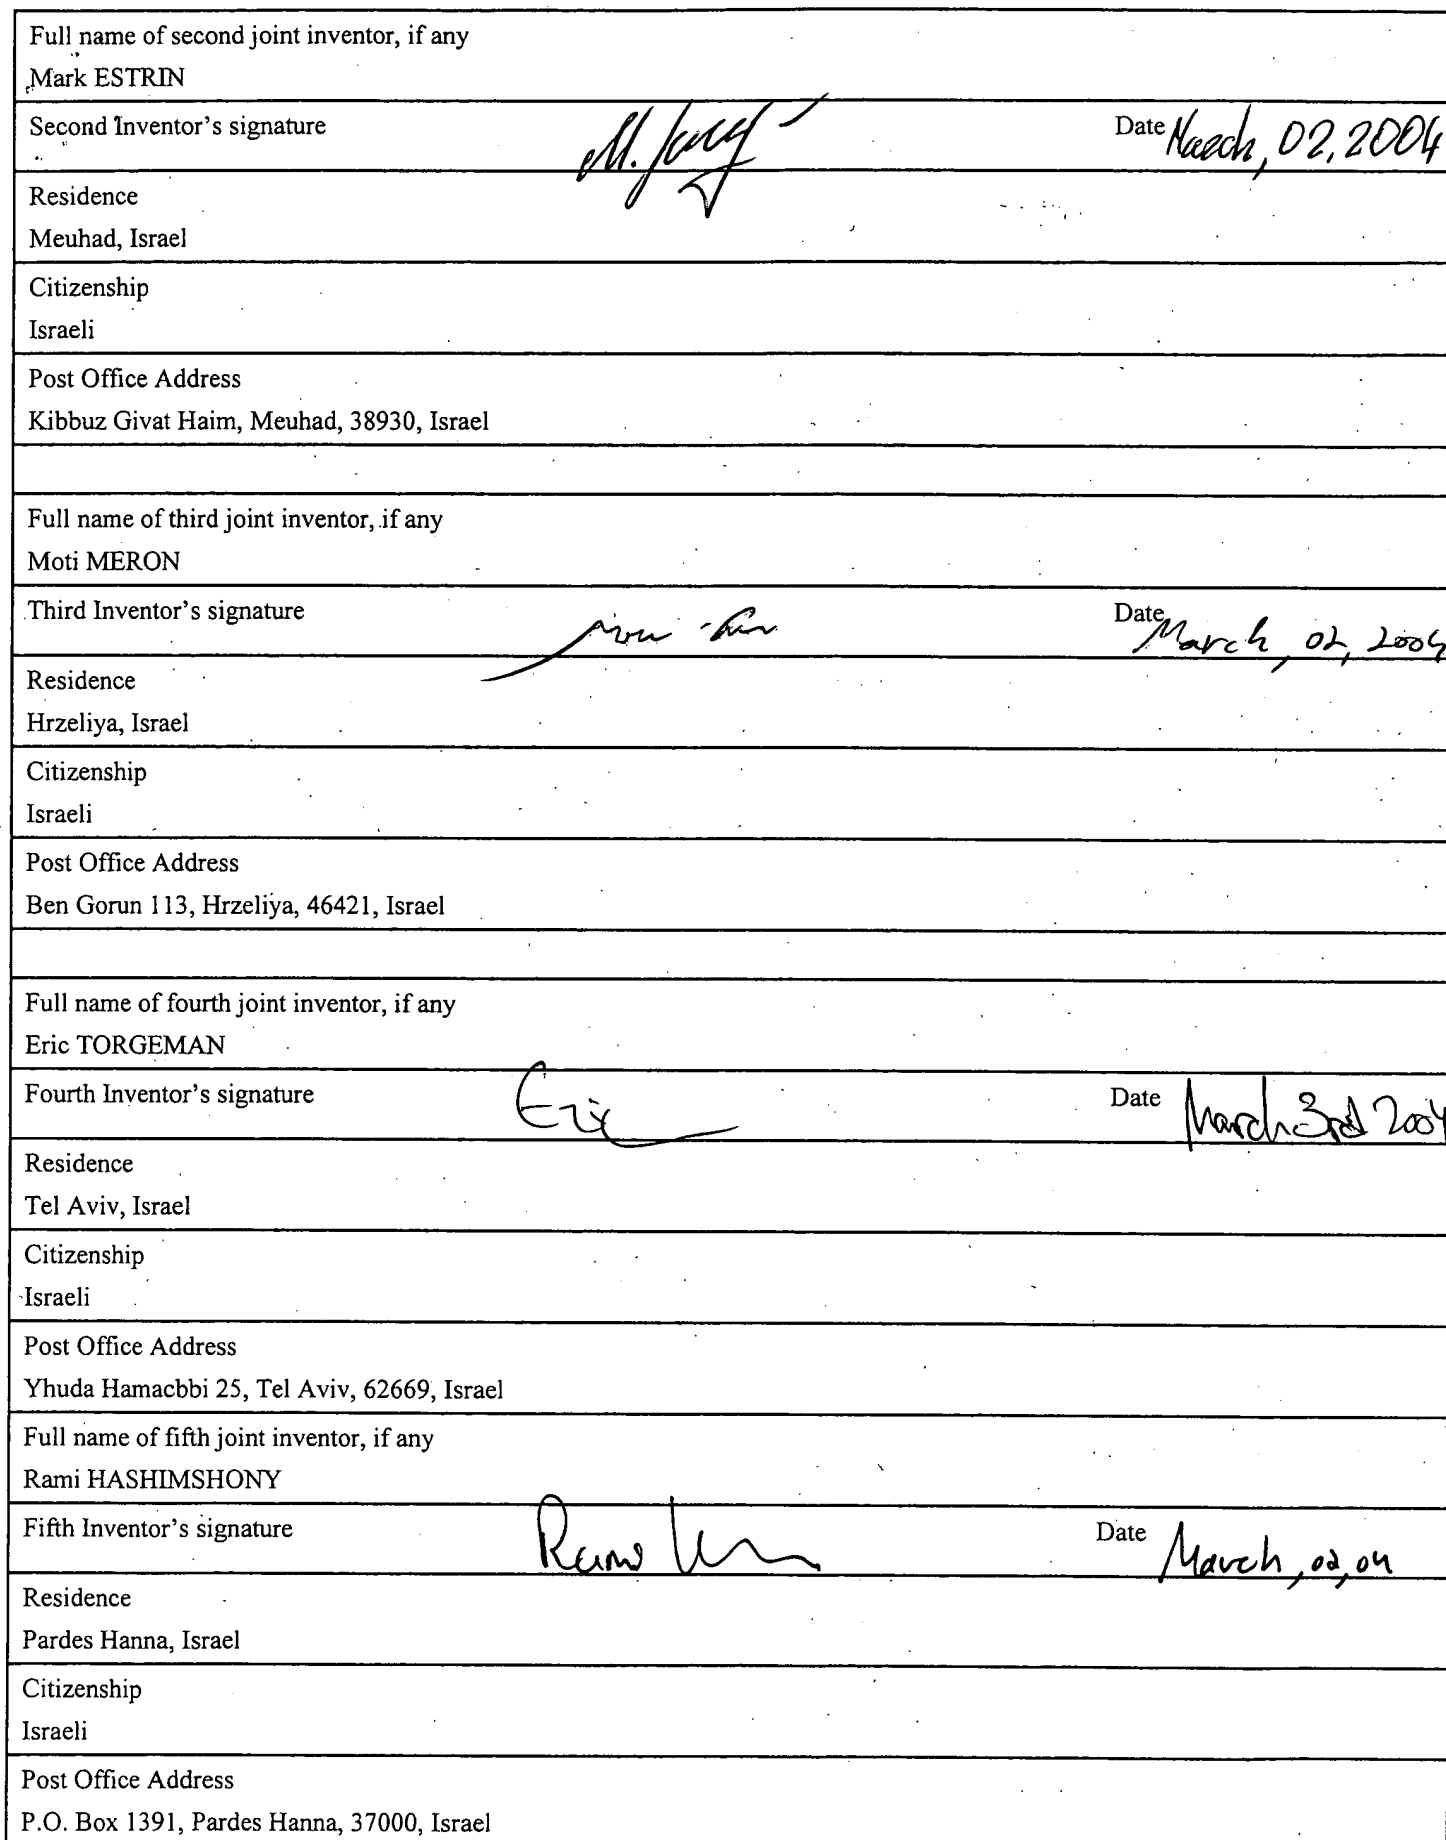 Full name of second joint inventor, if any
Mark ESTRIN
Second Inventor's signature
Date March, 02, 2004
Residence
Meuhad, Israel
Citizenship
Israeli
Post Office Address
Kibbuz Givat Haim, Meuhad, 38930, Israel
Full name of third joint inventor, if any
Moti MERON
Third Inventor's signature
Date March, 02, 2004
Residence
Hrzeliya, Israel
Citizenship
Israeli
Post Office Address
Ben Gorun 113, Hrzeliya, 46421, Israel
Full name of fourth joint inventor, if any
Eric TORGEMAN
Fourth Inventor's signature Eric Date March 3rd 2004
Residence
Tel Aviv, Israel
Citizenship
Israeli
Post Office Address
Yhuda Hamacbbi 25, Tel Aviv, 62669, Israel
Full name of fifth joint inventor, if any
Rami HASHIMSHONY
Fifth Inventor's signature Rami Date March, 02, 04
Residence
Pardes Hanna, Israel
Citizenship
Israeli
Post Office Address
P.O. Box 1391, Pardes Hanna, 37000, Israel